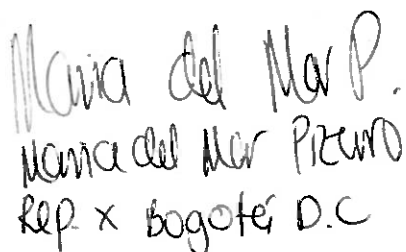 Maria del Mar P.
Maria del Mar Pizarro
Rep. x Bogotá D.C